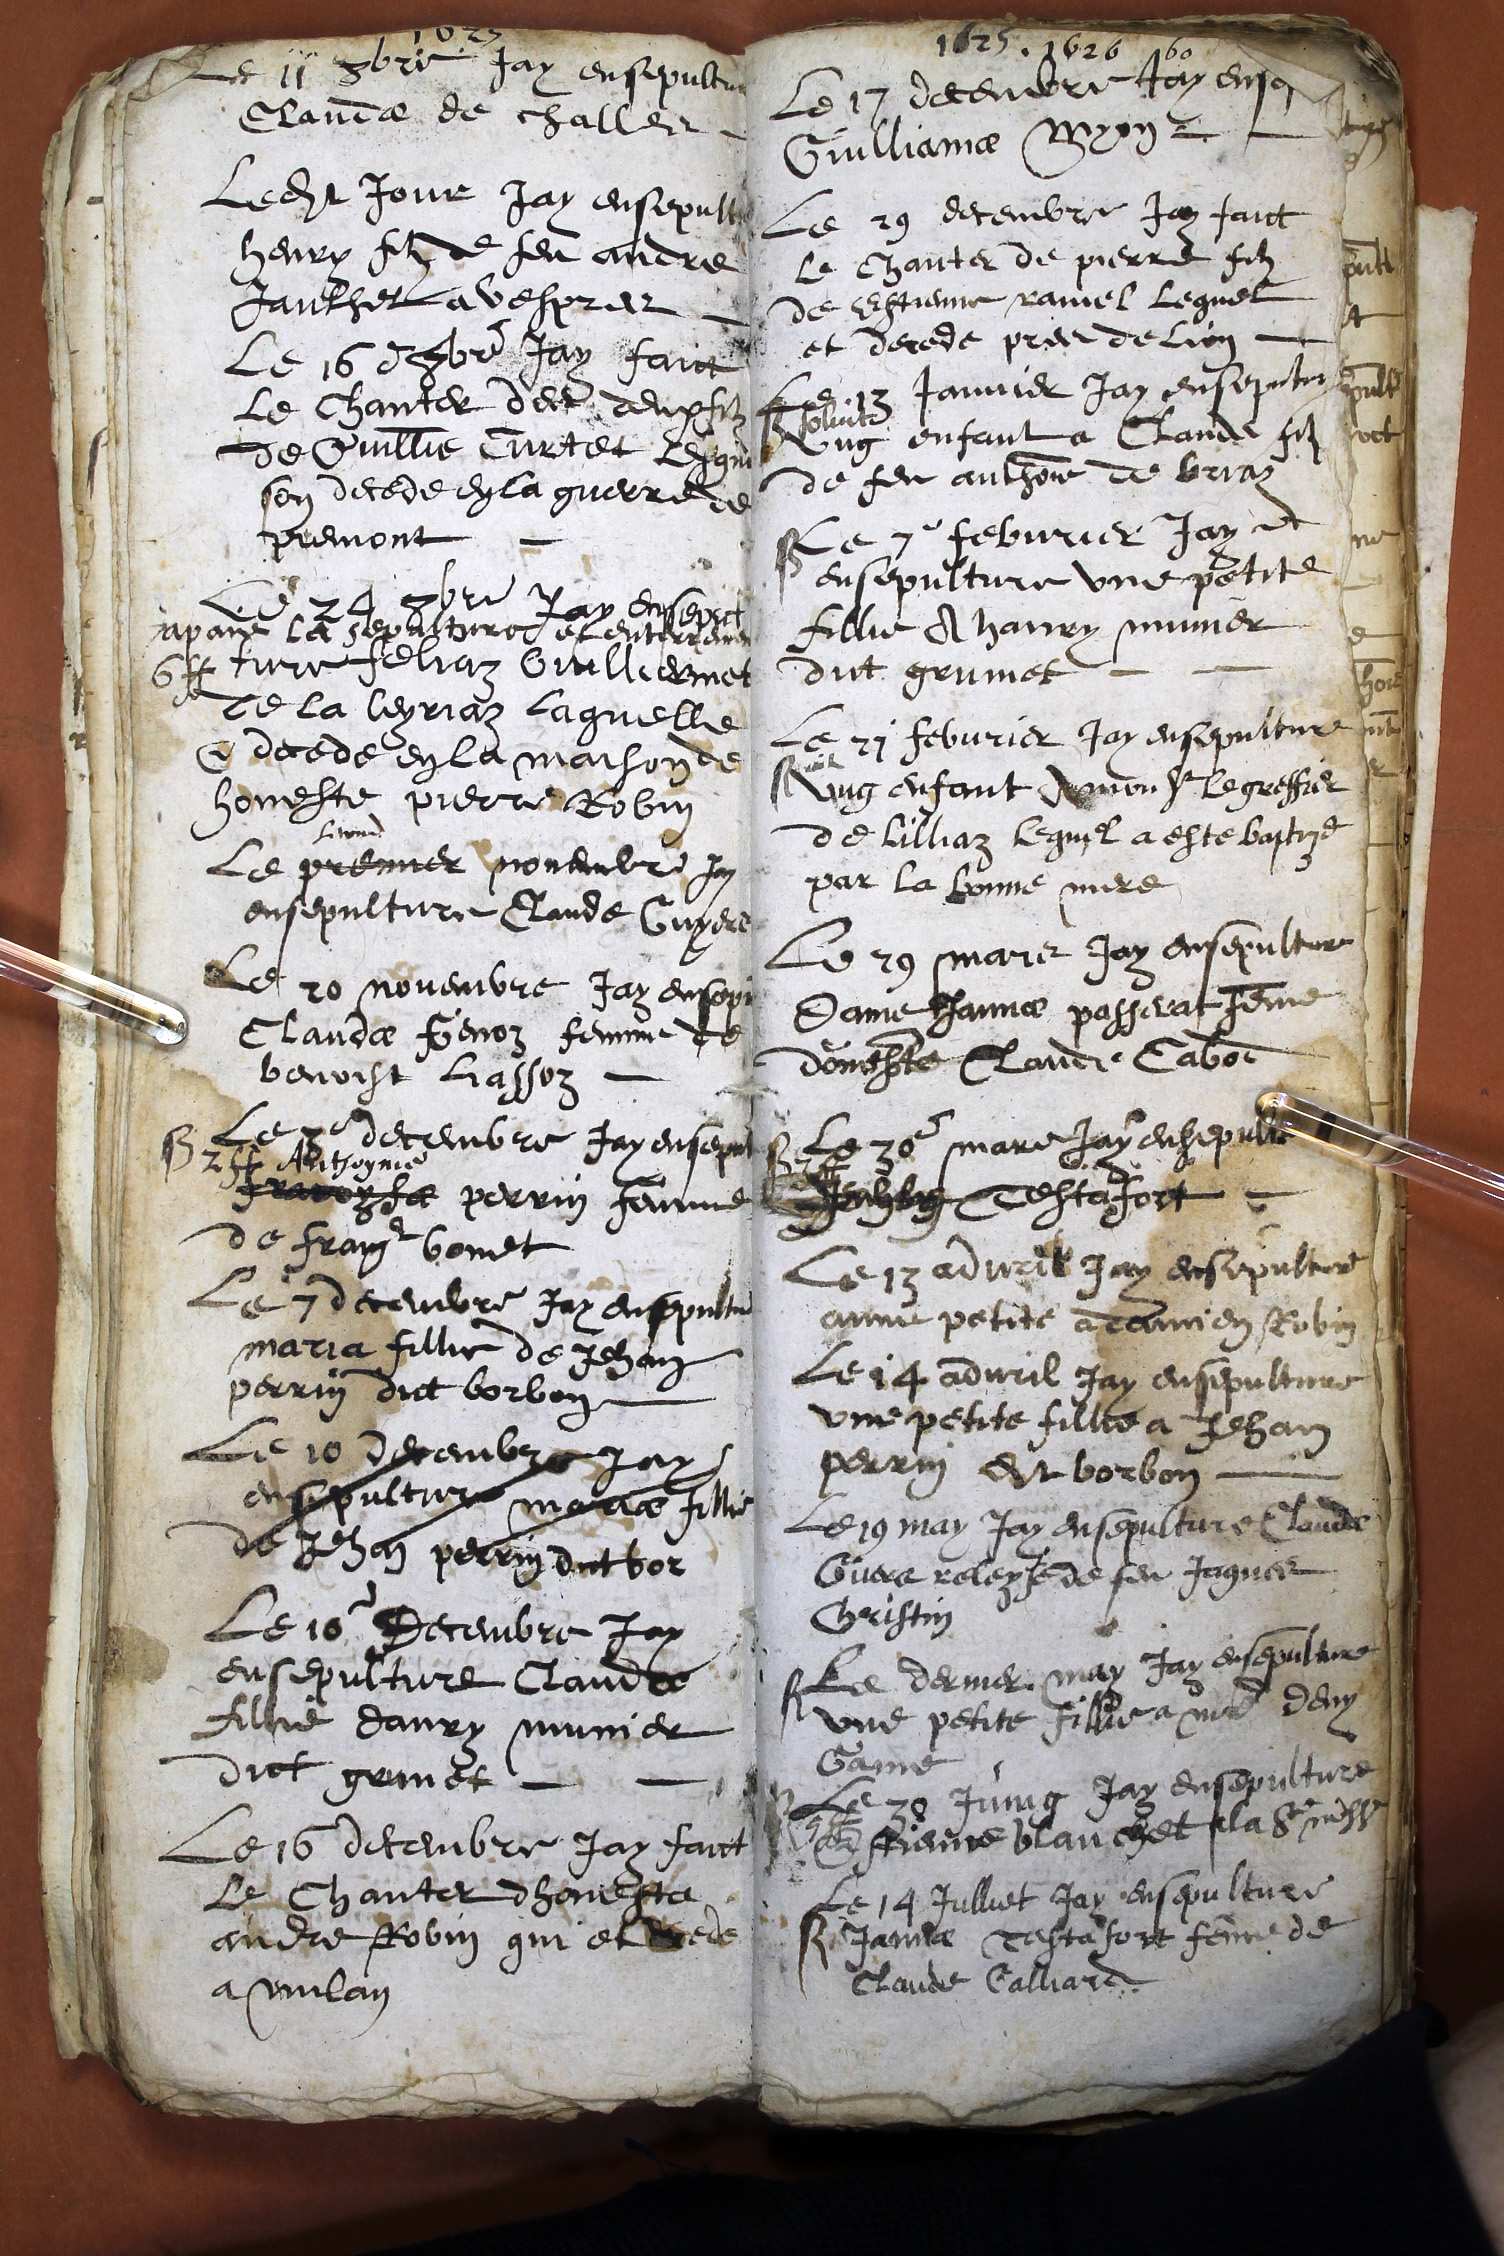 1625
Le 11 8bre Jay ensepultur
Claudæ de challes
Ledit Jour Jay ensepult
henry filz de feu andre
Janthet a vespres
Le 16 d 8bre Jay faict
Le Chanter des deux filz
de Guillie Curtet Lesqu
son decede en la guerre de
premont
Le 24 8bre Jay ensepct
japaie la sepulture et enterremen
6 ff ture feliaz Guilliermet
de la leyriaz laquelle
decede en la maison de
honeste pierre Robin
Le premier novembre Jay
ensepulture Claude Guyere
Le 20 novembre Jay ensepu
Claudæ femme de
benoist Liassoz
Le 3e decembre Jay ensepul
2 ff Anthoyme
perrin femme
de franç bomet
Le 7 decembre Jay ensepultur
maria fillie de Jehan
perrin dict borbon
Le 10 decembre Jay
ensepulture mariæ fillie
de Jehan perrin dict bor
Le 10e Decembre Jay
ensepulture Claudæ
fillie danry munier
dict grumet
Le 16 decembre Jay faict
Le Chanter dhoneste
andre Robin qui et decede
a milan
1625 . 1626 60
Le 17 decembre Jay ensep
Guilliamæ
Le 29 decembre Jay faict
le Chanter de pierre filz
de Estienne ramel Lequel
et decede pres de Lion
Le 13 Janvier Jay ensepultur
solvit
ung enfant a Claude filz
de feu anthoine de briaz
Le 7e feburier Jay
ensepulture une petite
fillie A hanry munier
dict grumet
Le 21 feburier Jay ensepulture
ung enfant A mon sr le greffier
de Lilliaz lequel a este baptize
par la bonne mere
Le 29 mars Jay ensepulture
Dame Jannæ passerat feme
doneste Claude Cabod
Le 30e mars Jay ensepulte
Testafort
Le 13 advril Jay ensepulture
anne petite a damien Robin
Le 14 advril Jay ensepulture
une petite fillie a Jehan
perrin dit borbon
Le 19 may Jay ensepulture Claudæ
de feu Jaques
Christin
Le dernier may Jay ensepulture
une petite fillie a deny
Game
Le 30 Juing Jay ensepulture
Estienne blanchet
Le 14 Julliet Jay ensepulture
Janna Testafort feme de
Claude Calliard